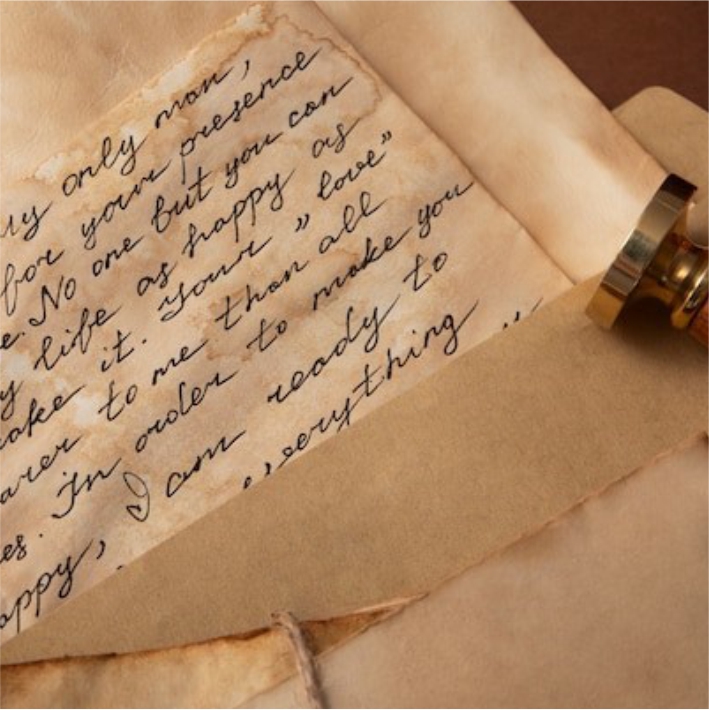 only man,
for your presence
No one but you can
life as happy as
it. Your " love"
to me than all
es. In order to make you
appy, I am ready to
everything